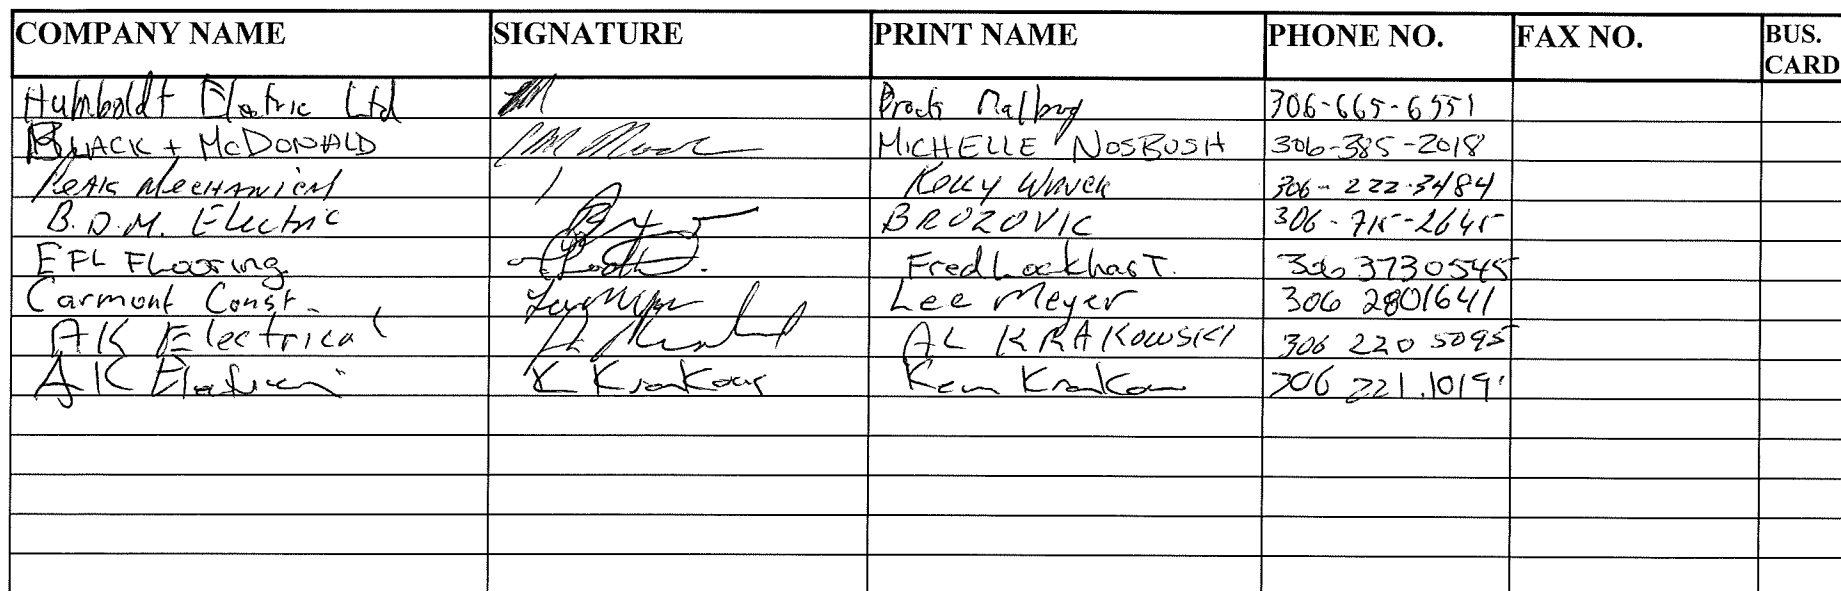 COMPANY NAME SIGNATURE PRINT NAME PHONE NO. FAX NO. BUS. CARD
Humboldt Electric Ltd 306-665-6551
BLACK + McDONALD MICHELLE NOSBUSH 306-385-2018
PEAK MECHANICAL KELLY 306-222-3484
B.D.M. Electric BROZOVIC 306-715-2645
EFL FLooring Fred LockharT. 306 3730545
Carmont Const. Lee Meyer 306 2801641
AK Electrical AL KRAKOWSKI 306 220 5095
AK 306 221.1019